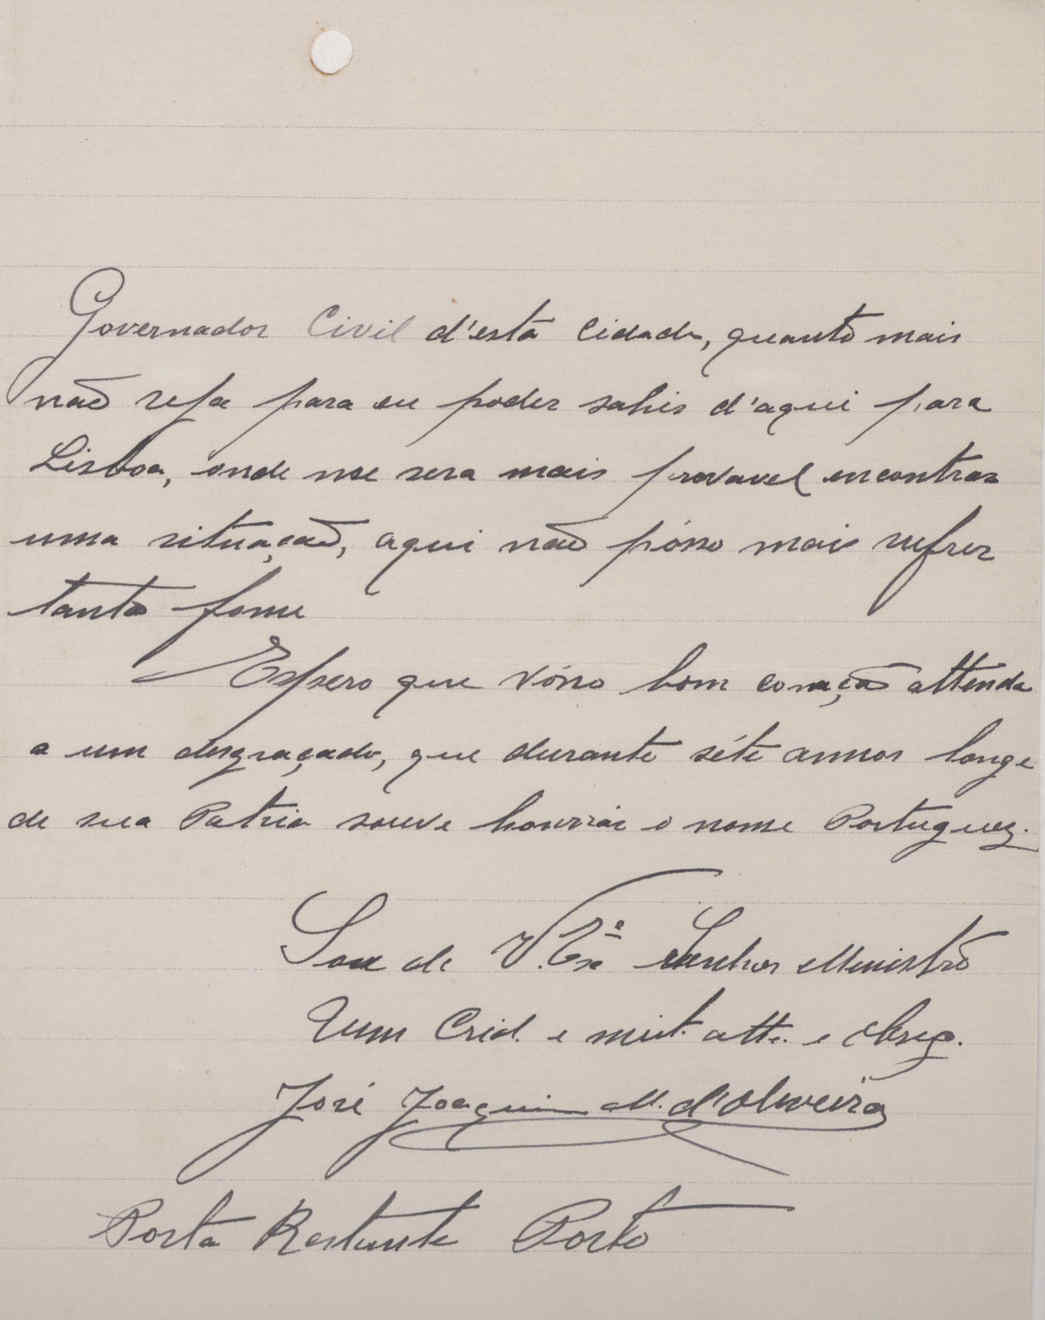 Governador Civil d'esta Cidade, quanto mais
não seja para eu poder sahir d'aqui para
Lisboa, onde me sera mais provavel encontrar
uma situação, aqui não pósso mais sufrer
tanta fome
Espero que vósso bom coração attenda
a um desgraçado, que durante séte annos longe
de sua Patria souve honrrar o nome Portuguez.
Sou de V. Exª Senhor Ministro
Um Criad. e muit. att. e obrig.
José Joaquim M. d'Oliveira
Posta Restante Porto